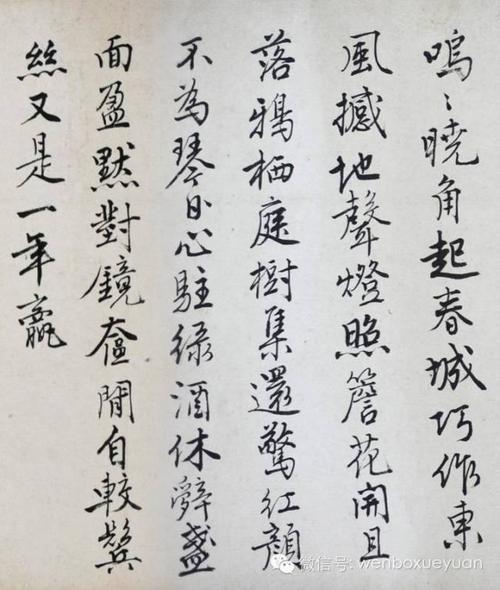 嗚〻曉角起春城巧作東
風撼地聲燈照簷花開且
落鴉栖庭樹集還驚紅顏
不為琴日心駐綠酒休辭盞
面盈默對鏡奩閒自較鬓
絲又是一年贏
微信号: wenboxueyuan